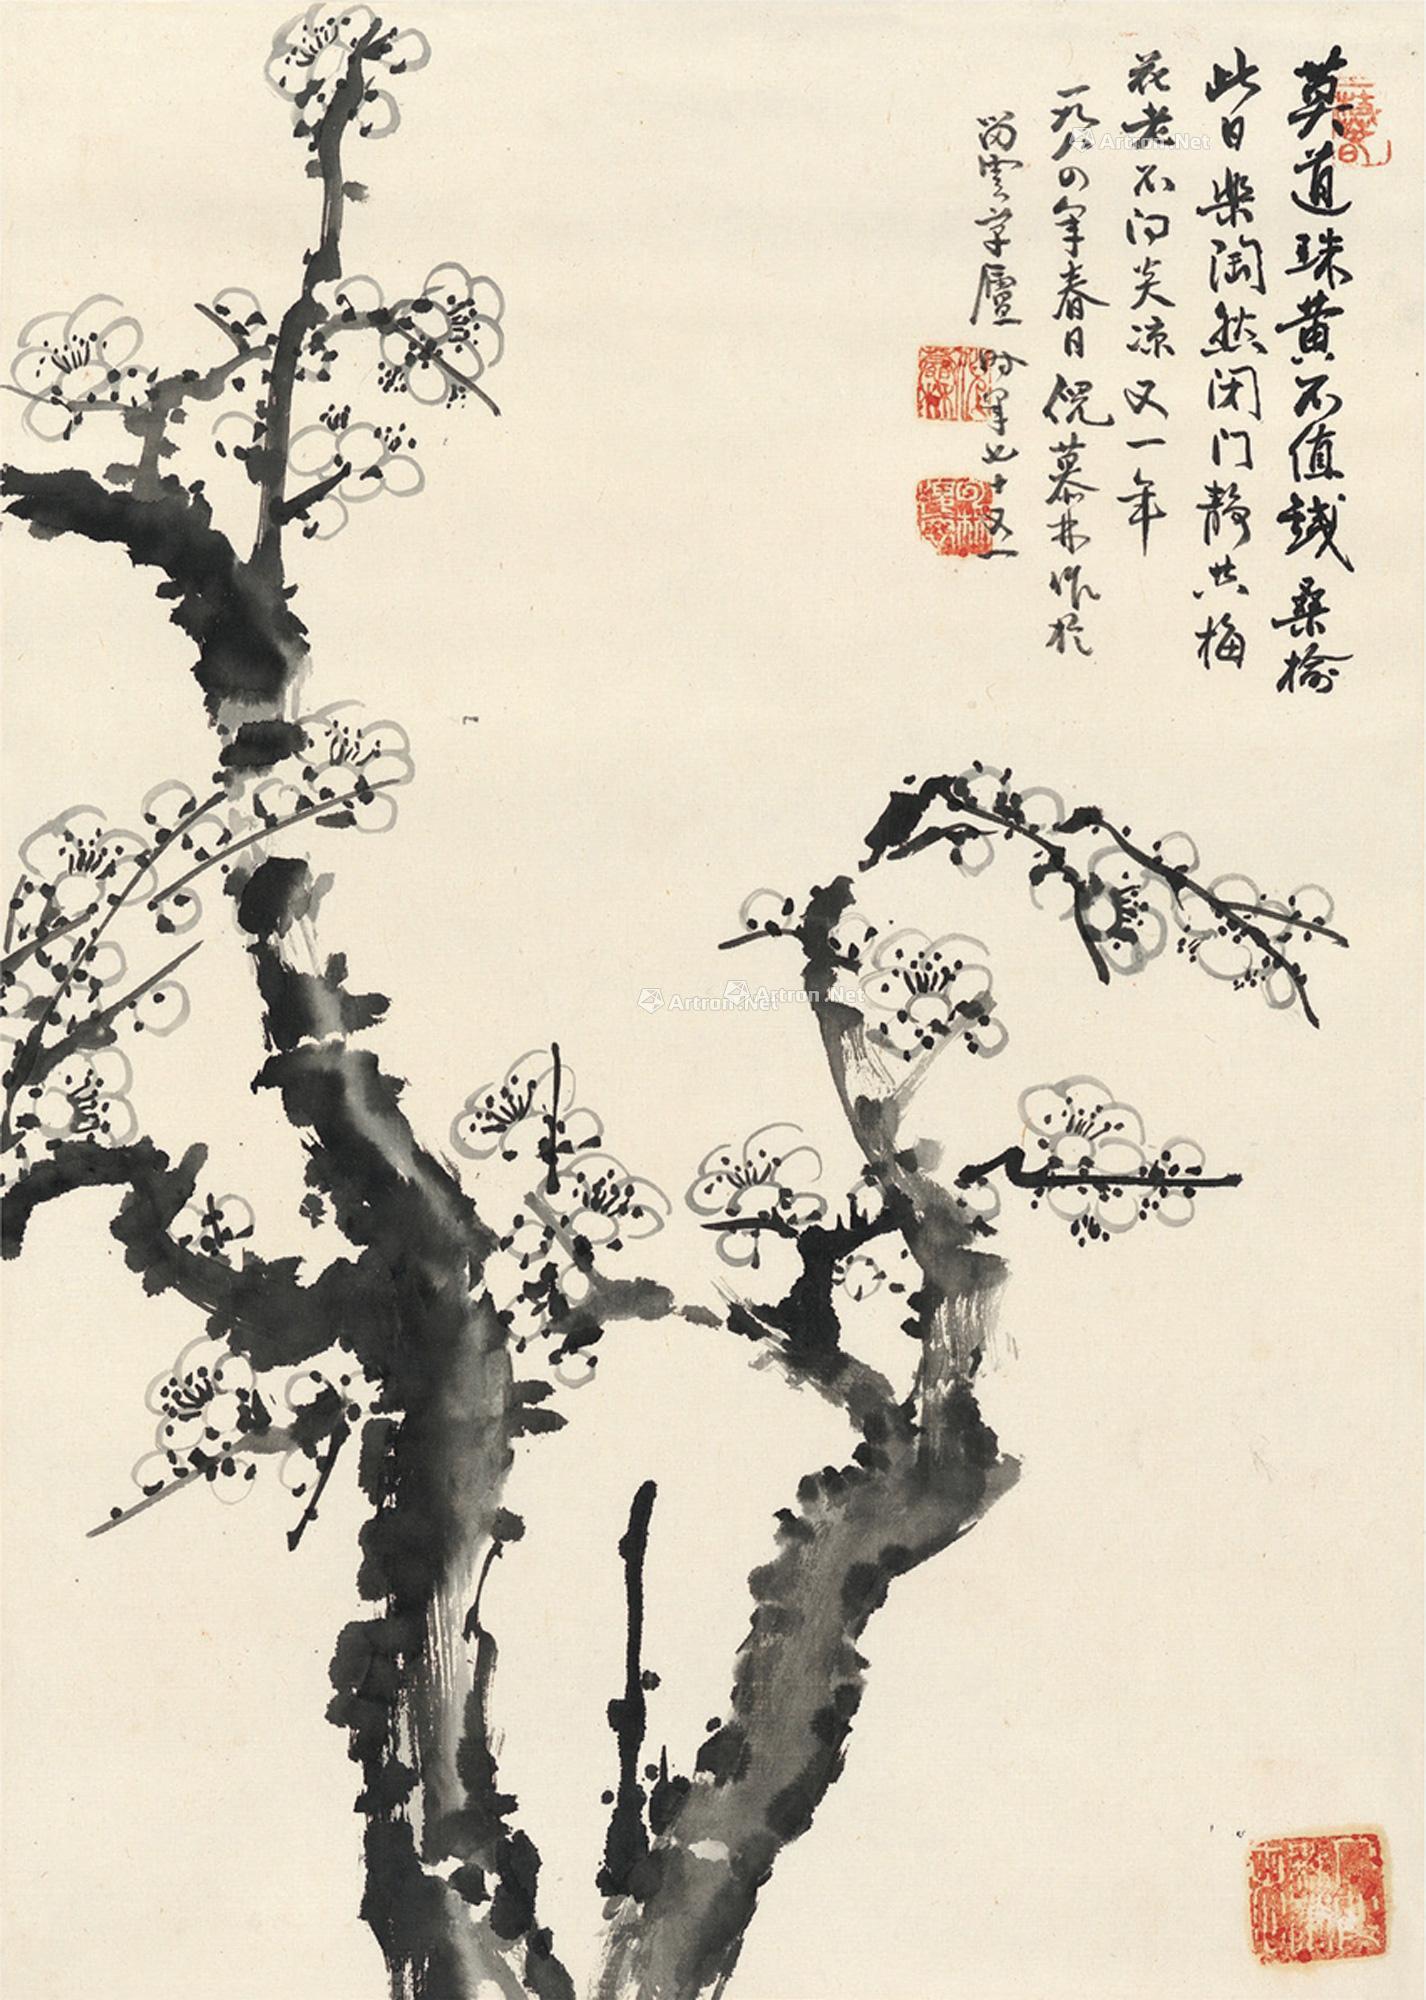 莫道珠黄不值钱桑榆
此日乐陶然闭门静共梅
花老不问炎凉又一年
一九八四年春日倪慕林作于
留云草庐时年七十又一
Artron.Net
Artron.Net
Artron.Net